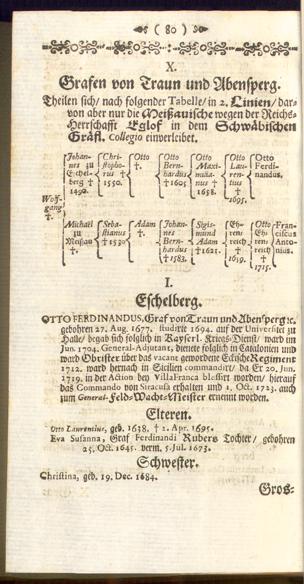 ( 80 )
X.
Grafen von Traun und Abensperg.
Theilen sich/ nach folgender Tabelle/ in 2. Linien/ dar-
von aber nur die Meißauische wegen der Reichs-
Herrschafft Eglof in dem Schwäbischen
Gräfl. Collegio einverleibet.
Wolf-
gang
†.
Johan-
nes zu
Eschel-
berg †
1490.
Chri-
stopho-
rus †
1550.
Otto
†.
Otto
Bern-
hardus
†1605
Otto
Maxi-
milia-
nus †
1658.
Otto
Lau-
ren-
tius
†
1695.
Otto
Ferdi-
nandus.
Michael
zu
Meißau
†.
Seba-
stianus
†1530
Adam
†.
Johan-
Bern-
hardus
†1583.
Sigis-
mund
Adam
†1621.
Otto
Eh-
ren-
reich
†
1659.
Otto
Eh-
ren-
reich
†
1715.
Fran-
ciscus
Anto-
nius.
I.
Eschelberg.
OTTO FERDINANDUS, Graf von Traun und Abensperg ꝛc.
gebohren 27. Aug. 1677. studirte 1694. auf der Universitet zu
Halle/ begab sich folglich in Kayserl. Kriegs-Dienst/ ward im
Jun. 1704. General-Adjutant, dienete folglich in Catalonien und
ward Obrister über das vacant gewordene Eckische Regiment
1712. ward hernach in Sicilien commandirt/ da Er 20. Jun.
1719. in der Action bey Villa Franca blessirt worden/ hierauf
das Commando von Siracusa erhalten und 1. Oct. 1723. auch
zum General-Feld-Wacht-Meister ernennt worden.
Elteren.
Otto Laurentius, geb. 1638. † 2. Apr. 1695.
Eva Susanna, Graf Ferdinandi Rubers Tochter/ gebohren
25. Oct. 1645. verm. 5. Jul. 1673.
Schwester.
Christina, geb. 19. Dec. 1684.
Gros-